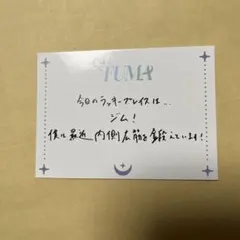 YUMA
今日のラッキープレイスは..
ジム!
僕は最近 内側広筋を鍛えています!